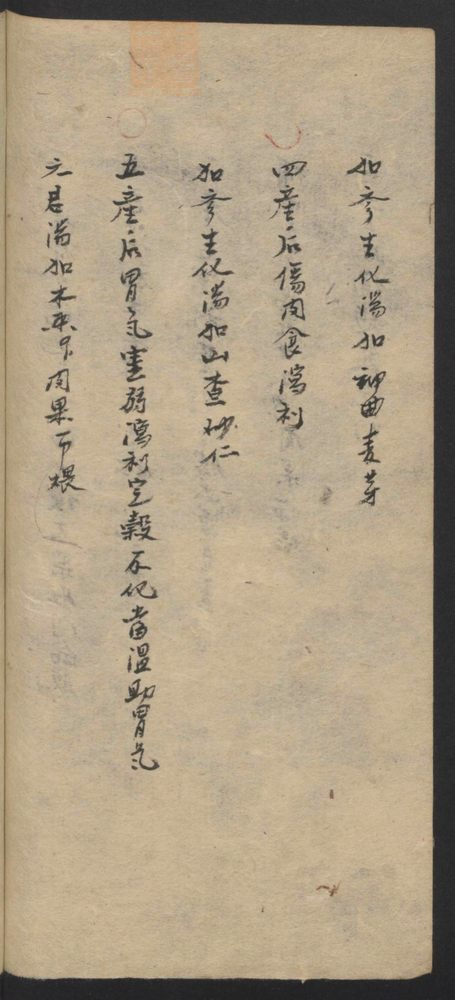 加參生化湯加神曲麦芽
四產后傷肉食瀉利
加參生化湯加山查砂仁
五產后胃氣虚弱瀉利完穀不化當温助胃氣
六君湯加木香 肉果一个煨